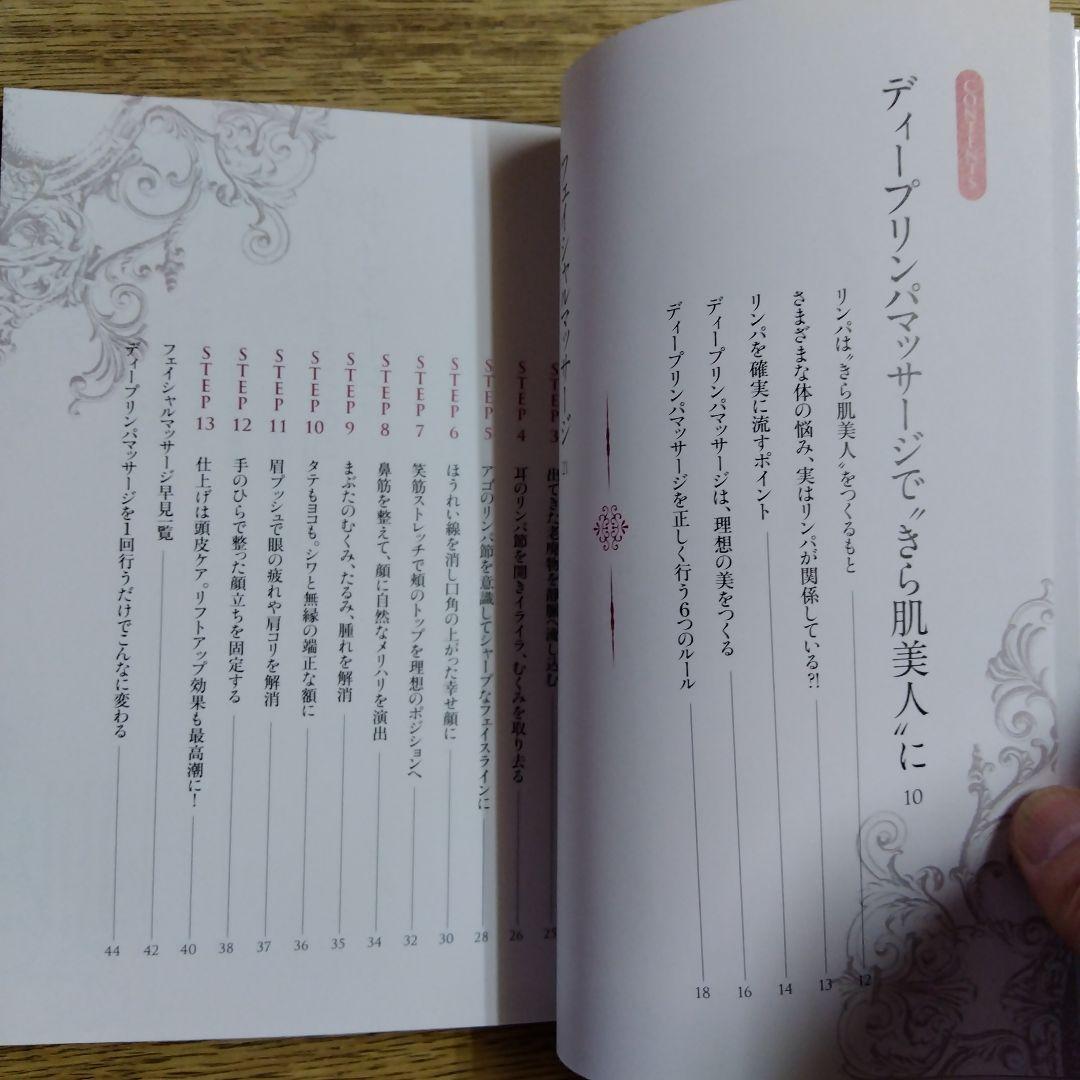 CONTENTS
ディープリンパマッサージで〝きら肌美人〟に 10
リンパは〝きら肌美人〟をつくるもと 12
さまざまな体の悩み、実はリンパが関係している?! 13
リンパを確実に流すポイント 14
ディープリンパマッサージは、理想の美をつくる 16
ディープリンパマッサージを正しく行う6つのルール 18
フェイシャルマッサージ 21
STEP 3 出てきた老廃物を静脈へ流し込む 25
STEP 4 耳のリンパ節を開きイライラ、むくみを取り去る 26
STEP 5 アゴのリンパ節を意識してシャープなフェイスラインに 28
STEP 6 ほうれい線を消し口角の上がった幸せ顔に 30
STEP 7 笑筋ストレッチで頬のトップを理想のポジションへ 32
STEP 8 鼻筋を整えて、顔に自然なメリハリを演出 34
STEP 9 まぶたのむくみ、たるみ、腫れを解消 35
STEP 10 タテもヨコも。シワと無縁の端正な額に 36
STEP 11 眉プッシュで眼の疲れや肩コリを解消 37
STEP 12 手のひらで整った顔立ちを固定する 38
STEP 13 仕上げは頭皮ケア。リフトアップ効果も最高潮に! 40
フェイシャルマッサージ早見一覧 42
ディープリンパマッサージを1回行うだけでこんなに変わる 44